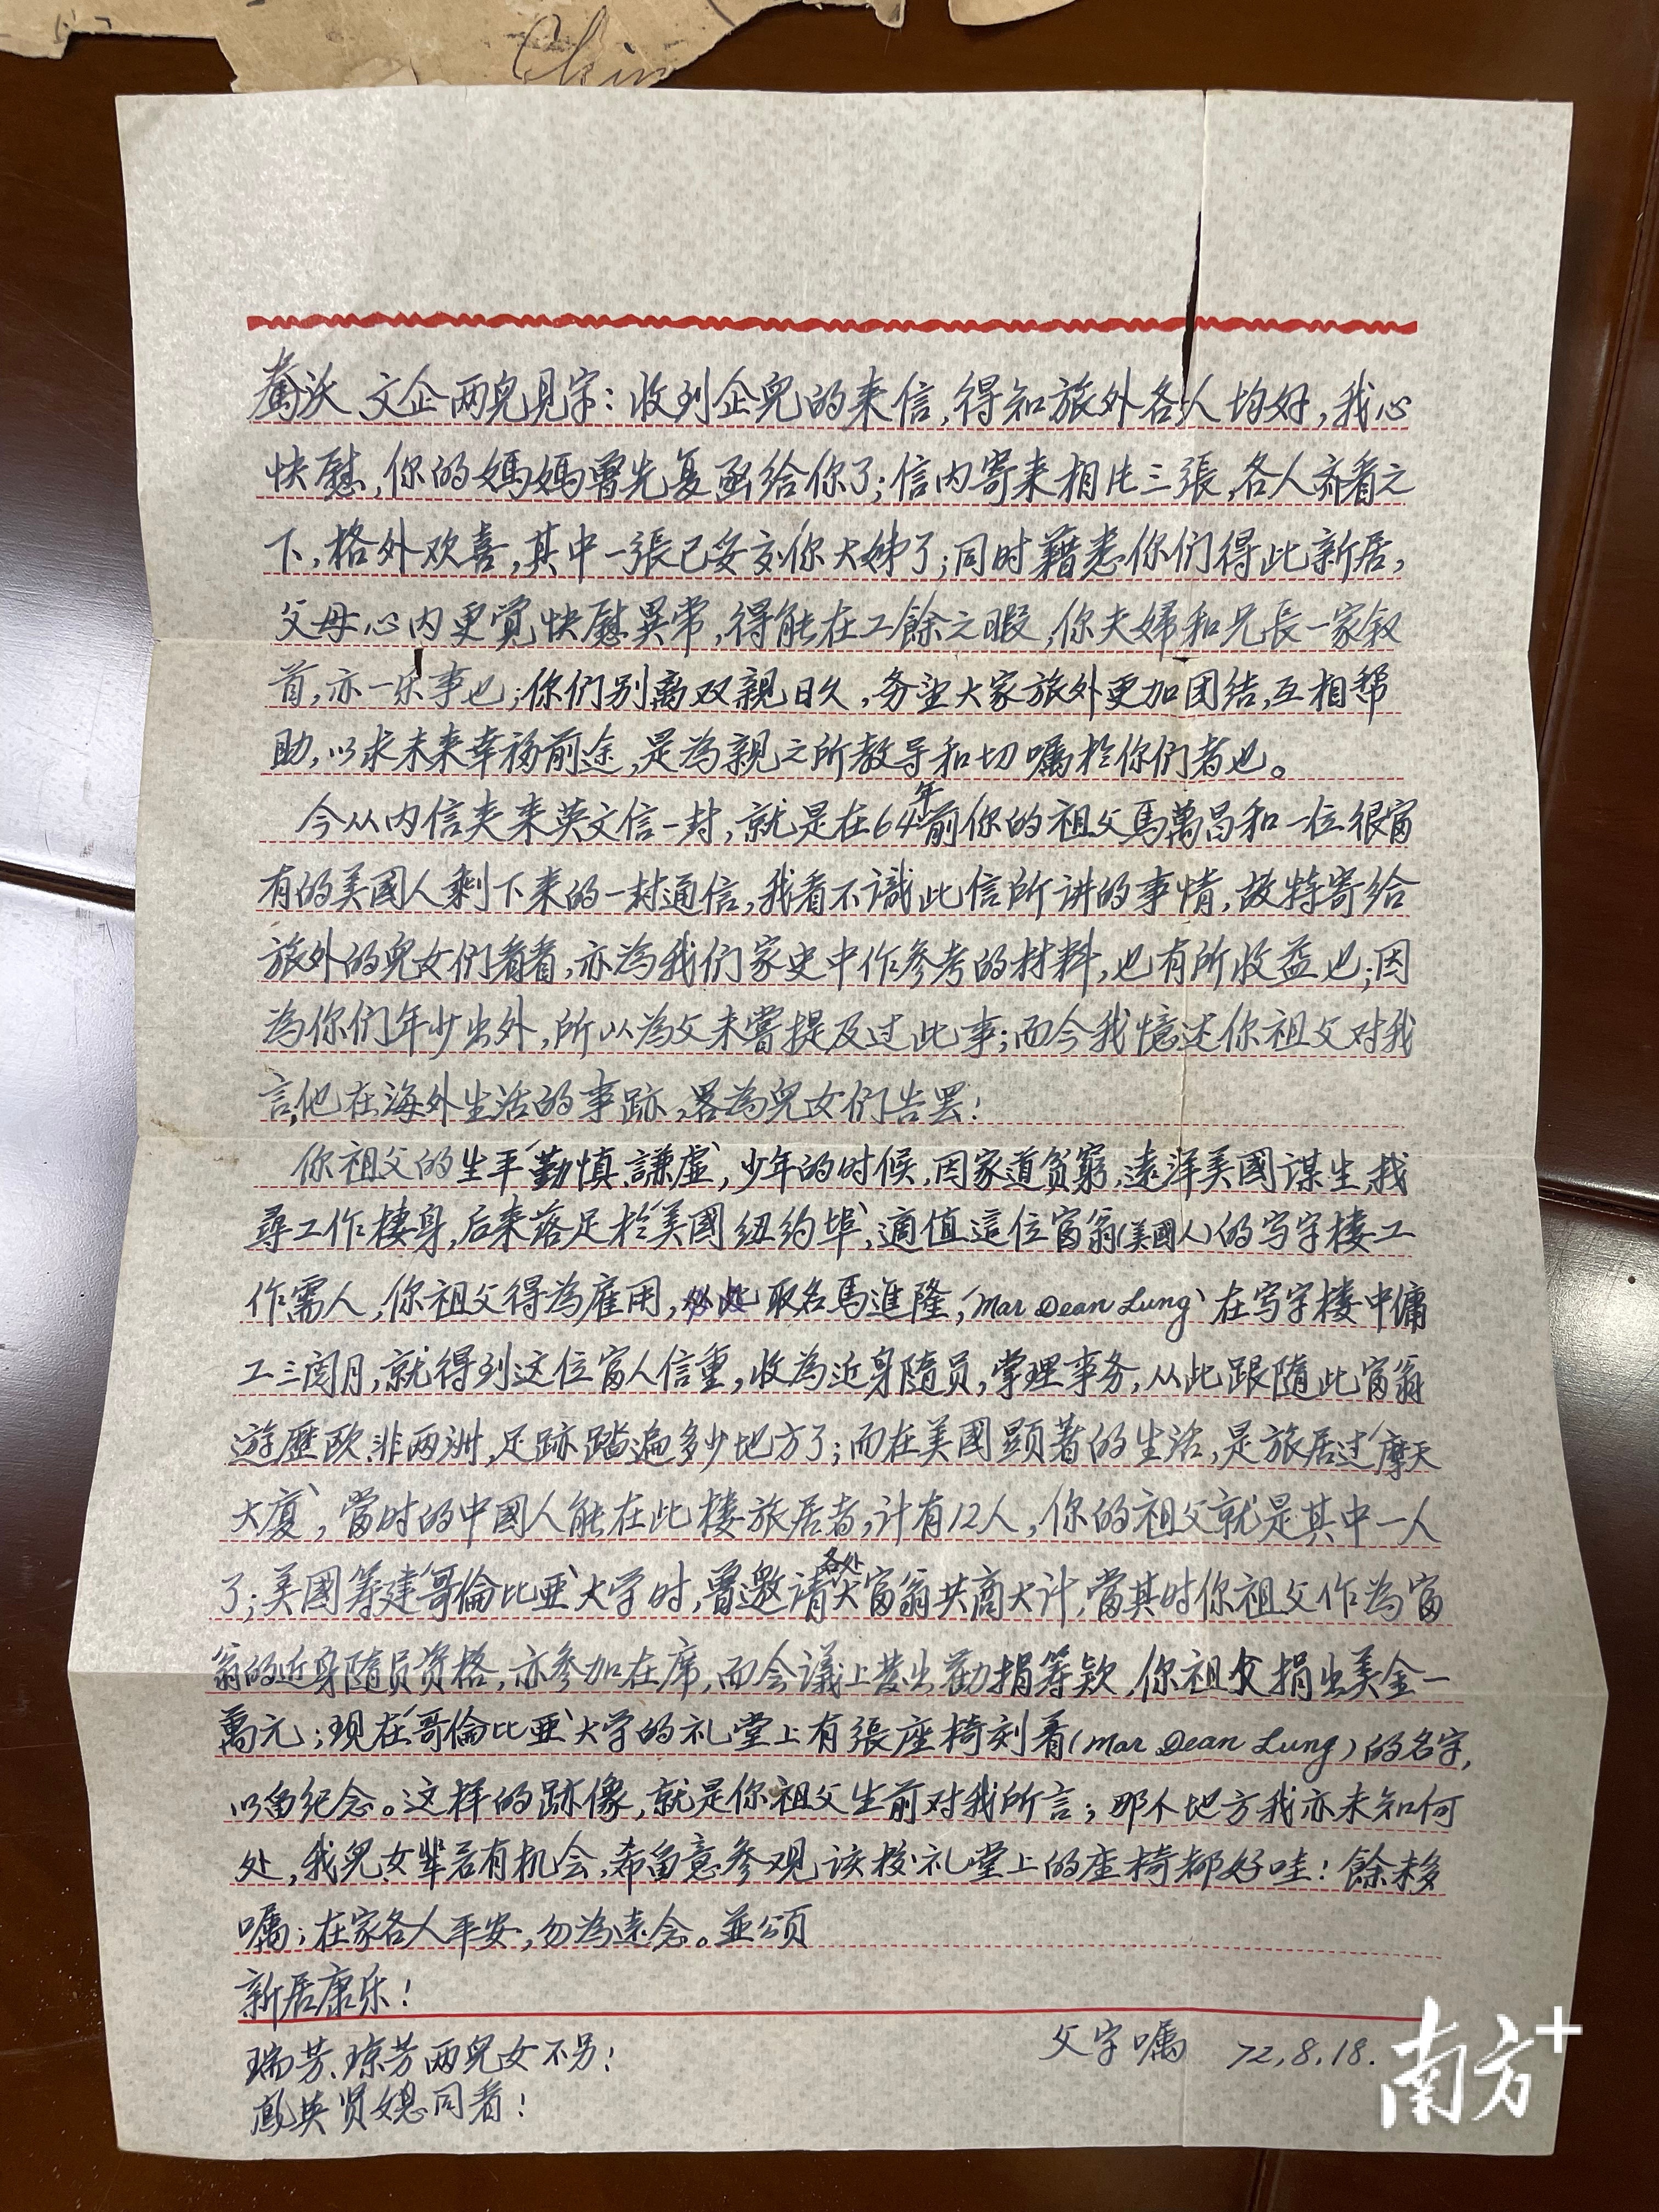 Chin
沃、文企两兒見字：收到企兒的来信，得知旅外各人均好，我心
快慰，你的媽媽曾先复函给你了；信内寄来相片三張，各人齐看之
下，格外欢喜，其中一張已妥交你大姊了；同时藉悉你們得此新居，
父母心内更覚快慰異常，得能在工餘之暇，你夫婦和兄長一家叙
首，亦一乐事也；你們别离双親日久，务望大家旅外更加团结，互相帮
助，以求未来幸福前途，是為親之所教导和切嘱於你們者也。
今从内信夹来英文信一封，就是在64年前你的祖父馬萬昌和一位很富
有的美國人剩下来的一封通信，我看不識此信所讲的事情，故特寄给
旅外的兒女們看看，亦為我们家史中作参考的材料，也有所收益也；因
為你们年少出外，所以為父未嘗提及过此事；而今我憶述你祖父对我
言，他在海外生活的事跡，畧為兒女們告罢！
你祖父的生平勤慎謙虚，少年的时候，因家道贫窮，遠洋美國谋生，找
尋工作棲身，后来落足於美國纽约埠，適值這位富翁（美國人）的写字楼工
作需人，你祖父得為雇用，取名馬進隆，Mar Dean Lung 在写字楼中傭
工三阅月，就得到这位富人信重，收為近身随员，掌理事务，从此跟随此富翁
遊歷欧、非两洲，足跡踏遍多少地方了；而在美國顕著的生活，是旅居过“摩天
大廈”，當时的中國人能在此楼旅居者，计有12人，你的祖父就是其中一人
了；美國筹建“哥倫比亚”大学时，曾邀请各处大富翁共商大计，當其时你祖父作為富
翁的近身随员资格，亦参加在席，而会議上发出勸捐筹款，你祖父捐出美金一
萬元；现在“哥倫比亚”大学的礼堂上有張座椅刻着（Mar Dean Lung）的名字，
以留纪念。这样的跡像，就是你祖父生前对我所言；那个地方我亦未知何
处，我兒女輩若有机会，希留意参观该校礼堂上的座椅都好哇！餘未多
嘱；在家各人平安，勿為遠念。並頌
新居康乐！
父字嘱 72.8.18.
瑞芳、琼芳两兒女不另！
鳳英贤媳同看！
南方+